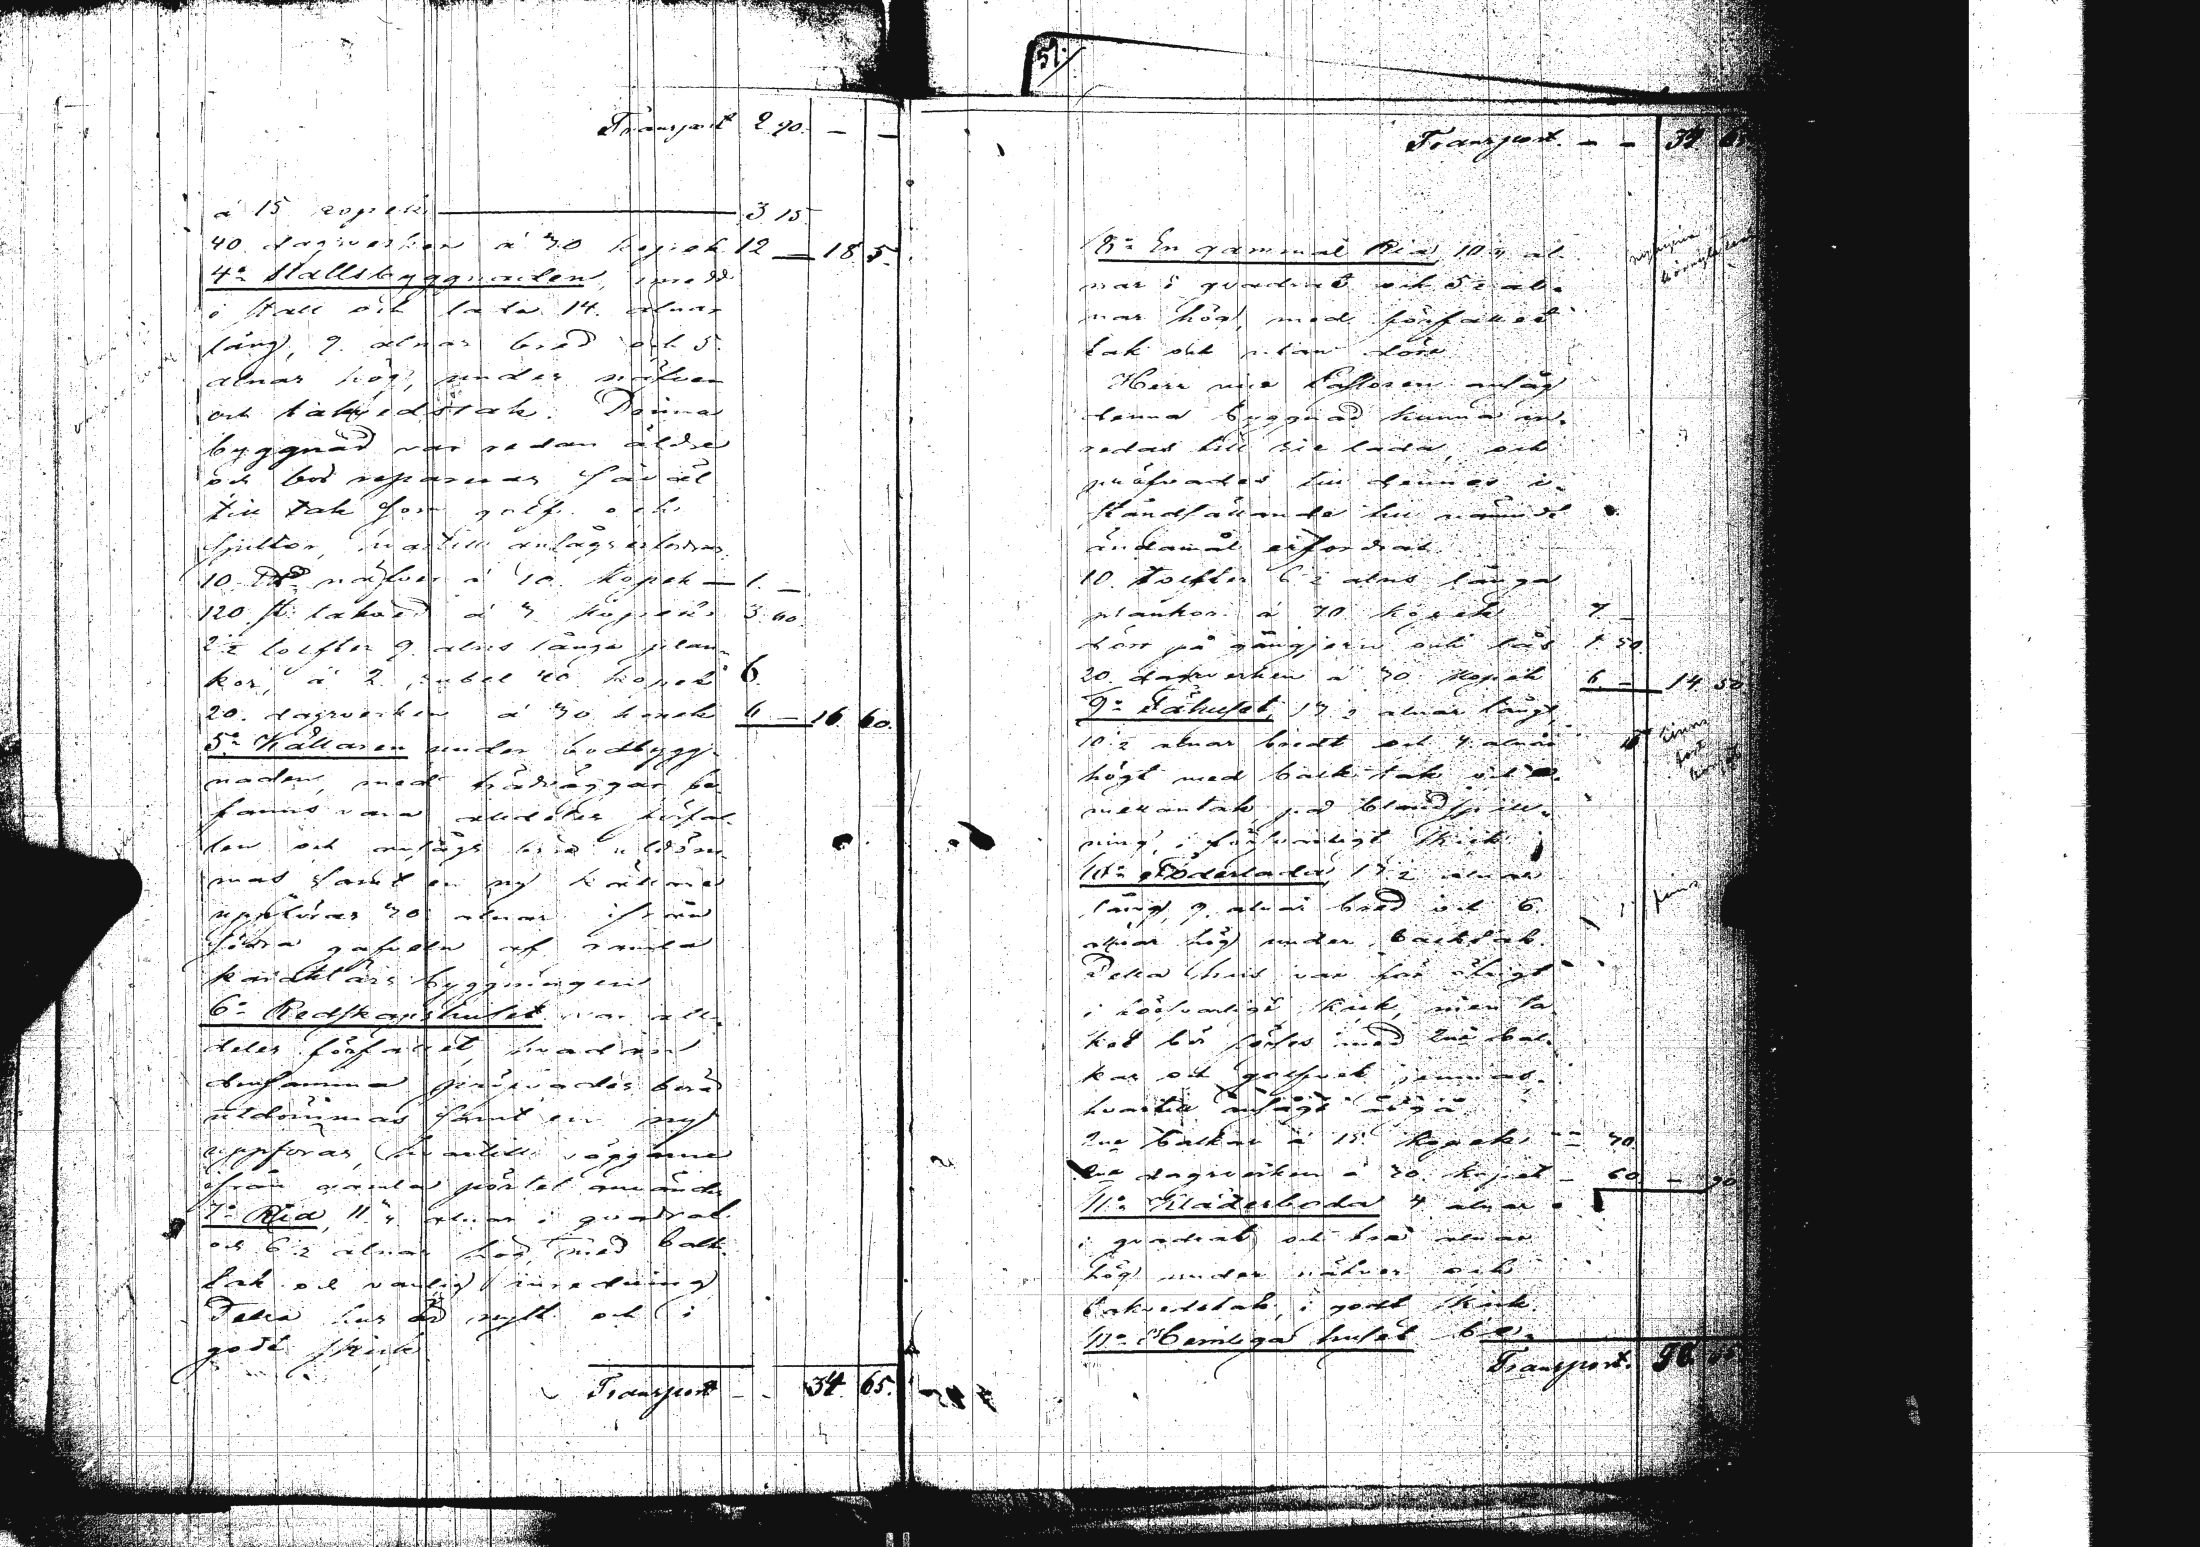 Transport 2 90. — —
á 15 kopek 3 15
40 dagsverken á 30 kopek 12 — 18 5.
4:o Stallsbyggnaden, inredd
i stall och lada 14. alnar
lång, 9. alnar bred och 5.
alnar hög, under näfver
och takvedstak. Denna
byggnad var redan äldre
och bör repareras såväl
till tak som golf och
spiltor, hvartill ansågs erfordras
10. näfver á 10. kopek — 1. —
120. st. takved á 3 kopek 3. 60.
2½ tolfter 9. alns långa plan-
kor, á 2 rubel 40 kopek 6.
20. dagsverken á 30 kopek 6 — 16 60.
5:o Källaren under bodbygg-
naden, med trädväggar be-
fanns vara alldeles förfal-
len och ansågs böra utdöm-
mas samt en ny källare
uppföras 30 alnar ifrån
södra gafveln af gamla
karaktärsbyggningen
6:o Redskapshuset var all-
deles förfallet, hvadan
densamma pröfvades böra
utdömmas samt en ny
uppföras, hvartill väggarne
ifrån gamla pörtet användes
7:o Ria, 11 ¾ alnar i quadrat
och 6½ alnar hög med balk-
tak och vanlig inredning
Detta hus är nytt och i
godt skick
Transport — — 34. 65.
51.
Transport. — — 34 65
8:o En gammal Ria 10 ¾ al-
nar i quadrat och 5½ al-
nar hög, med förfallet
tak och utan dörr
Herr vice Pastoren ansåg
denna byggnad kunna in-
redas till rie lada, och
pröfvades till dennes i-
ståndsättande till nämndt
ändamål erfordras
10. tolfter 6½ alns långa
plankor á 70. kopek 7. —
dörr på gångjern och lås 1. 50.
20. dagsverken á 30 kopek 6 — 14 50
9:o Fähuset, 17½ alnar långt,
10½ alnar bredt och 4 alnar
högt med balktak och
mellantak på
ning, i försvarligt skick
10:o Foderlada 17½ alnar
lång, 9. alnar bred och 6.
alnar hög under balktak.
Detta hus var för öfrigt
i försvarligt skick, men ta-
ket bör förses med två bal-
kar och golfvet jemnas,
hvartill ansågs åtgå
två balkar á 15 kopek — 30
två dagsverken á 30. kopek — 60. — 90
11:o Kläderboda 4 alnar
i quadrat och två alnar
hög under näfver och
takvedstak, i godt skick.
11:o Hemliga huset
Transport. 50. 05